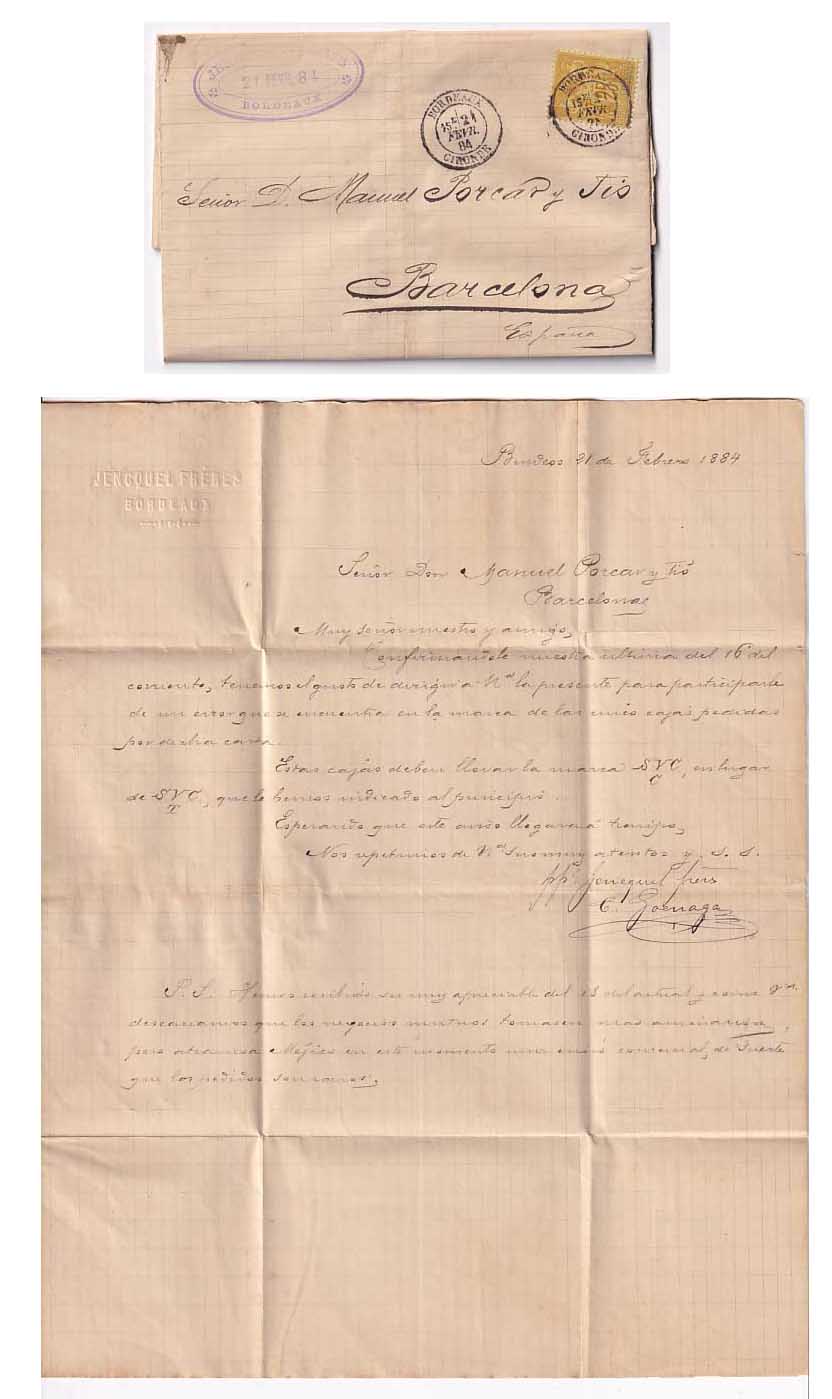 21 FEVR. 84
BORDEAUX
BORDEAUX
15E 21
FEVR.
84
GIRONDE
BORDEAUX
15E 21
FEVR.
GIRONDE
25
Señor D. Manuel Porcar y Tió
Barcelona
España
JENCQUEL FRÈRES
BORDEAUX
Burdeos 21 de Febrero 1884
Señor Don Manuel Porcar y Tió
Barcelona
Muy Señor nuestro y amigo,
Confirmandole nuestra ultima del 16 del
corriente, tenemos el gusto de dirigir a Vd la presente para participarle
de un error que se encuentra en la marca de las cajas pedidas
por dicha carta.
Estas cajas deben llevar la marca SVC, en lugar
C
de SVC, que le hemos indicado al principio.
T
Esperando que este aviso llegará á tiempo,
Nos repetimos de Vd Sus muy atentos y S. S.
ppn Jencquel frères
C. Goenaga
P. S. Hemos recibido su muy apreciable del 18 del actual y como Vd.
desearíamos que los negocios mutuos tomasen mas
pero atraviesa Mejico en este momento una crisis comercial, de Suerte
que los pedidos son raros.